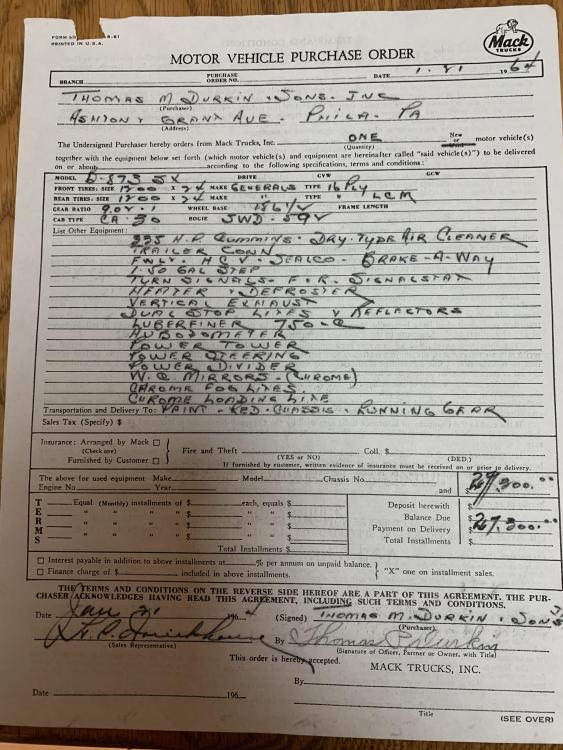 PRINTED IN U.S.A.
Mack
TRUCKS
MOTOR VEHICLE PURCHASE ORDER
BRANCH PURCHASE ORDER NO. DATE 1-21 1964
THOMAS M DURKIN & SONS. INC
(Purchaser)
ASHTON & GRANT AVE. PHILA. PA
(Address)
The Undersigned Purchaser hereby orders from Mack Trucks, Inc. ONE (Quantity) New or motor vehicle(s)
together with the equipment below set forth (which motor vehicle(s) and equipment are hereinafter called "said vehicle(s)") to be delivered
on or about according to the following specifications, terms and conditions:
MODEL B-873 SX DRIVE GVW GCW
FRONT TIRES: SIZE 1200 X 24 MAKE GENERALS TYPE 16 PLY
REAR TIRES: SIZE 1200 X 24 MAKE " TYPE " LCM
GEAR RATIO 9.02-1 WHEEL BASE FRAME LENGTH
CAB TYPE CA-30 BOGIE SWD-59V
List Other Equipment:
335 H.P CUMMINS - DRY-TYPE AIR CLEANER
TRAILER CONN
H C V - SEALCO - BRAKE-A-WAY
1-50 GAL STEP
TURN SIGNALS - F & R. SIGNALSTAT
HEATER & DEFROSTER
VERTICAL EXHAUST
DUAL STOP LITES & REFLECTORS
LUBERFINER 750-C
HUBODOMETER
POWER TOWER
POWER STEERING
POWER DIVIDER
W.C. MIRRORS - (CHROME)
CHROME FOG LITES.
CHROME LOADING LITE
Transportation and Delivery To: PAINT - RED - CHASSIS - RUNNING GEAR
Sales Tax (Specify) $
Insurance: Arranged by Mack
(Check one)
Furnished by Customer
Fire and Theft (YES or NO) Coll. $ (DED.)
If furnished by customer, written evidence of insurance must be received on or prior to delivery.
The above for used equipment Make Model Chassis No.
Engine No. Year and $ 27,300.00
TERMS
Equal (Monthly) installments of $ each, equals $
" " " $ " " $
" " " $ " " $
" " " $ " " $
Total Installments $
Deposit herewith $
Balance Due $
Payment on Delivery $ 27,300.00
Total Installments $
Interest payable in addition to above installments at % per annum on unpaid balance.
Finance charge of $ included in above installments.
"X" one on installment sales.
THE TERMS AND CONDITIONS ON THE REVERSE SIDE HEREOF ARE A PART OF THIS AGREEMENT. THE PUR-
CHASER ACKNOWLEDGES HAVING READ THIS AGREEMENT, INCLUDING SUCH TERMS AND CONDITIONS.
Date Jan 21 1964 (Signed) THOMAS M. DURKIN & SONS
(Purchaser)
By Thomas P Durkin
(Sales Representative) (Signature of Officer, Partner or Owner, with Title)
This order is hereby accepted.
MACK TRUCKS, INC.
By
Date 196
Title
(SEE OVER)